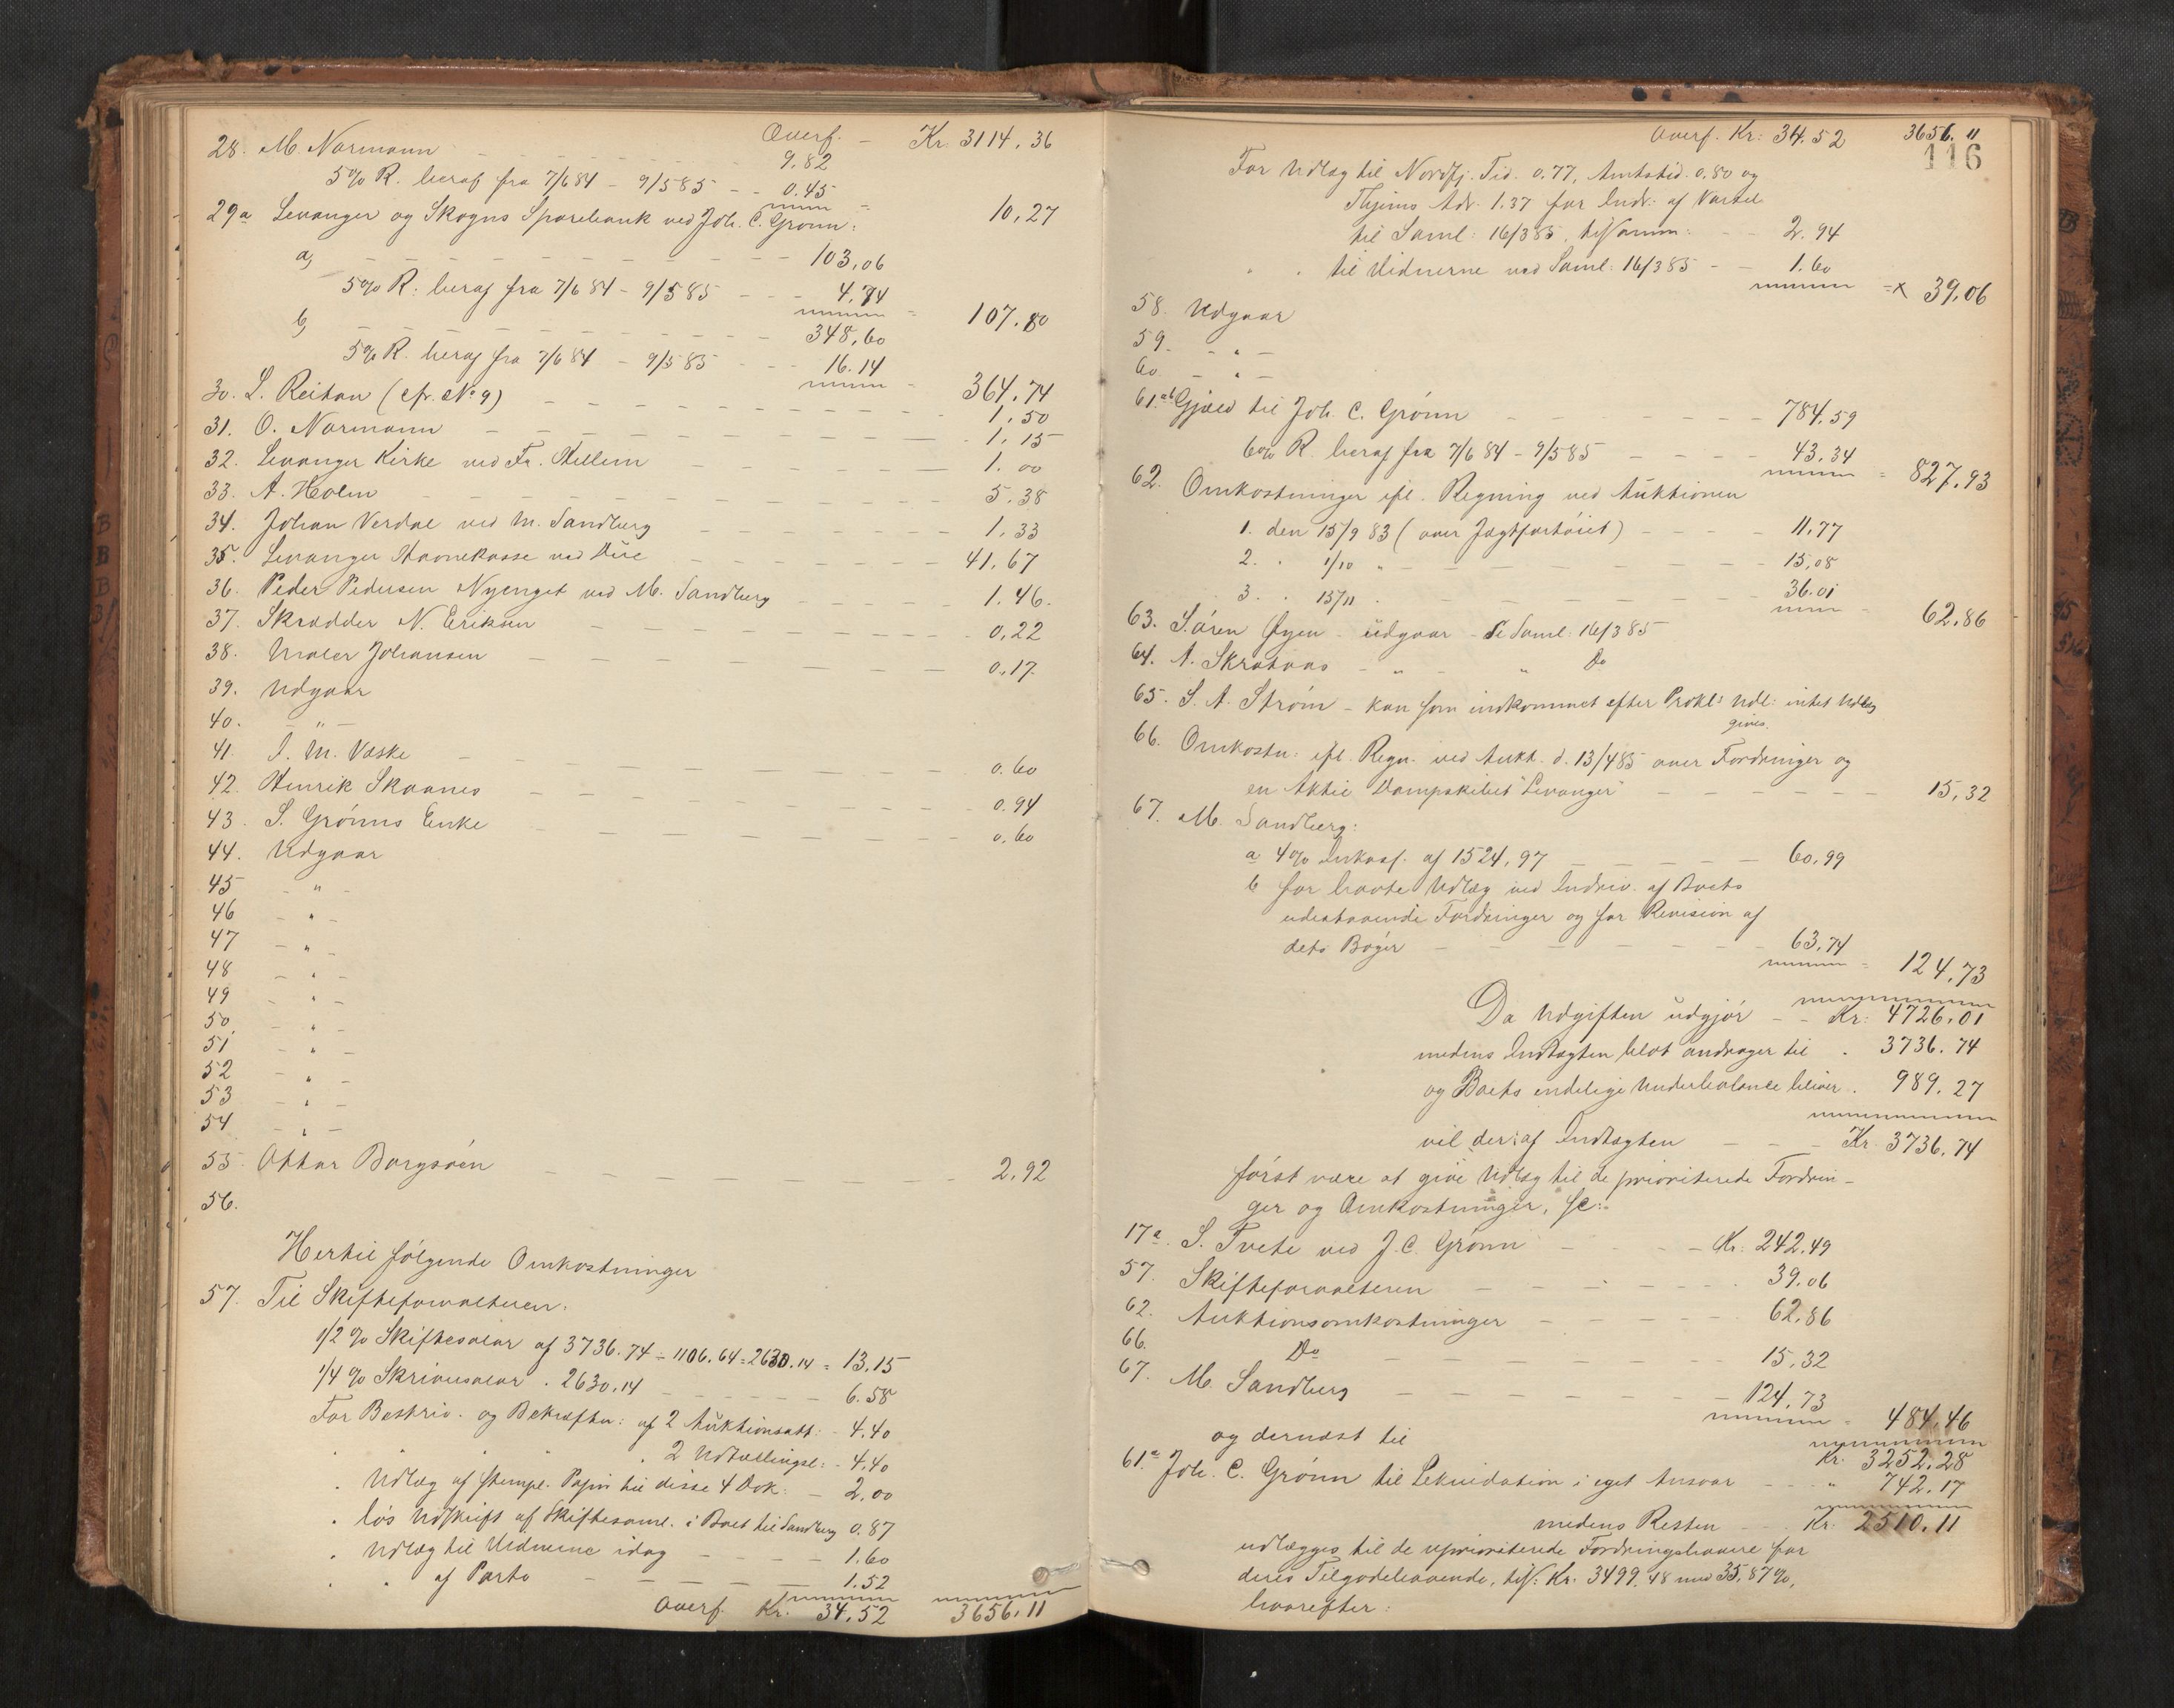 Overf. – Kr 3114.36
28. M. Normann 9.82
5% R. heraf fra 7/6 84 – 9/5 85 – – 0.45 = 10,27
29a Levanger og Skogns Sparebank ved Joh. C. Grønn:
a, 103,06
5% R. heraf fra 7/6 84 – 9/5 85 – – – 4.74 = 107.80
b, 348,60
5% R. heraf fra 7/6 84 – 9/5 85 – – – 16.14 = 364,74
30. L. Reitan (cfr. No 9) 1,50
31. O. Normann 1.15
32. Levanger Kirke ved Fr. Hellem 1.00
33. A. Holm 5.38
34. Johan Verdal ved M. Sandberg 1,33
35. Levanger Havnekasse ved Due 41,67
36. Peder Pedersen Nyenget ved M. Sandberg 1.46.
37. Skrædder N. Eriksen 0,22
38. Maler Johansen 0,17.
39. Udgaar
40. – " –
41. I. M. Væske 0.60
42. Henrik Skaanes 0.94
43. S. Grønns Enke 0.60
44. Udgaar
45 – " –
46 – " –
47 – " –
48 – " –
49 – " –
50. – " –
51 – " –
52 – " –
53 – " –
54 – " –
55. Ottar Borgsøen 2,92
56.
Hertil følgende Omkostninger
57. Til Skifteforvalteren.
1/2 % Skiftesalar af 3736.74 ÷ 1106.64 = 2630.14 = 13.15
1/4 % Skriversalar . 2630,14 – 6.58
For Beskriv. og Bekræftn: af 2 Auktionsatt: - 4.40
" " " . 2 Udtællingsl: - 4.40
. Udlæg af stempl. Papir til disse 4 Dok: – 2,00
. løs Udskrift af Skiftesaml. i Boet til Sandberg 0.87
. Udlæg til Vidnerne idag 1.60
. . af Porto 1.52
Overf. Kr. 34.52 3656.11
Overf. Kr: 34.52 3656.11
116
For Udlæg til Nordtj. Tid. 0.77, Amtstid. 0.80 og
Thjems Adr. 1.37 for Indr: af Varsel
til Saml: 16/3 85, tilsamm: 2.94
. . til Vidnerne ved Saml: 16/3 85 – – 1.60 = x 39,06
58. Udgaar
59. – " –
60 – " –
61.ab Gjæld til Joh. C. Grønn 784.59
6% R. heraf fra 7/6 84 – 9/5 85 – 43.34 = 827,93
62. Omkostninger ifl. Regning ved Auktionen
1. den 15/9 83 (over Jagtfartøiet) 11.77
2. . 1/10 " 15,08
3. . 13/11 . 36.01 = 62,86
63. Søren Øyen – udgaar – Se Saml: 16/3 85
64. A. Skrataas – " – " Do
65. S. A. Strøm – kan som indkommet efter Prokl: Udl: intet Udlæg
gives.
66. Omkostn: ifl. Regn. ved Aukt. d. 13/4 85 over Fordringer og
en Aktie Dampskibet "Levanger" 15,32
67. M. Sandberg:
a 4% Inkass. af 1524,97 60,99
b for havte Udlæg ved Inddriv. af Boets
udestaaende Fordringer og for Revision af
dets Bøger 63,74 = 124,73
Da Udgiften udgjør – – Kr: 4726,01
medens Indtægten blot andrager til . 3736.74
og Boets endelige Underbalance bliver . 989.27
vil der af Indtægten – – – Kr. 3736.74
først være at give Udlæg til de prioriterede Fordrin-
ger og Omkostninger, sc:
17a. S. Tvete ved J. C. Grønn – Kr: 242.49
57. Skifteforvalteren 39.06
62. Auktionsomkostninger 62,86
66. Do 15,32
67. M. Sandberg 124,73 = 484,46
og dernæst til Kr. 3252.28
61.a Joh. C. Grønn til Lekvidation i eget Ansvar – – " 742.17
medens Resten Kr: 2510.11
udlægges til de uprioriterede Fordringshavere for
deres Tilgodehavende, tils: Kr. 3499.48 med 35.87%,
hvorefter: